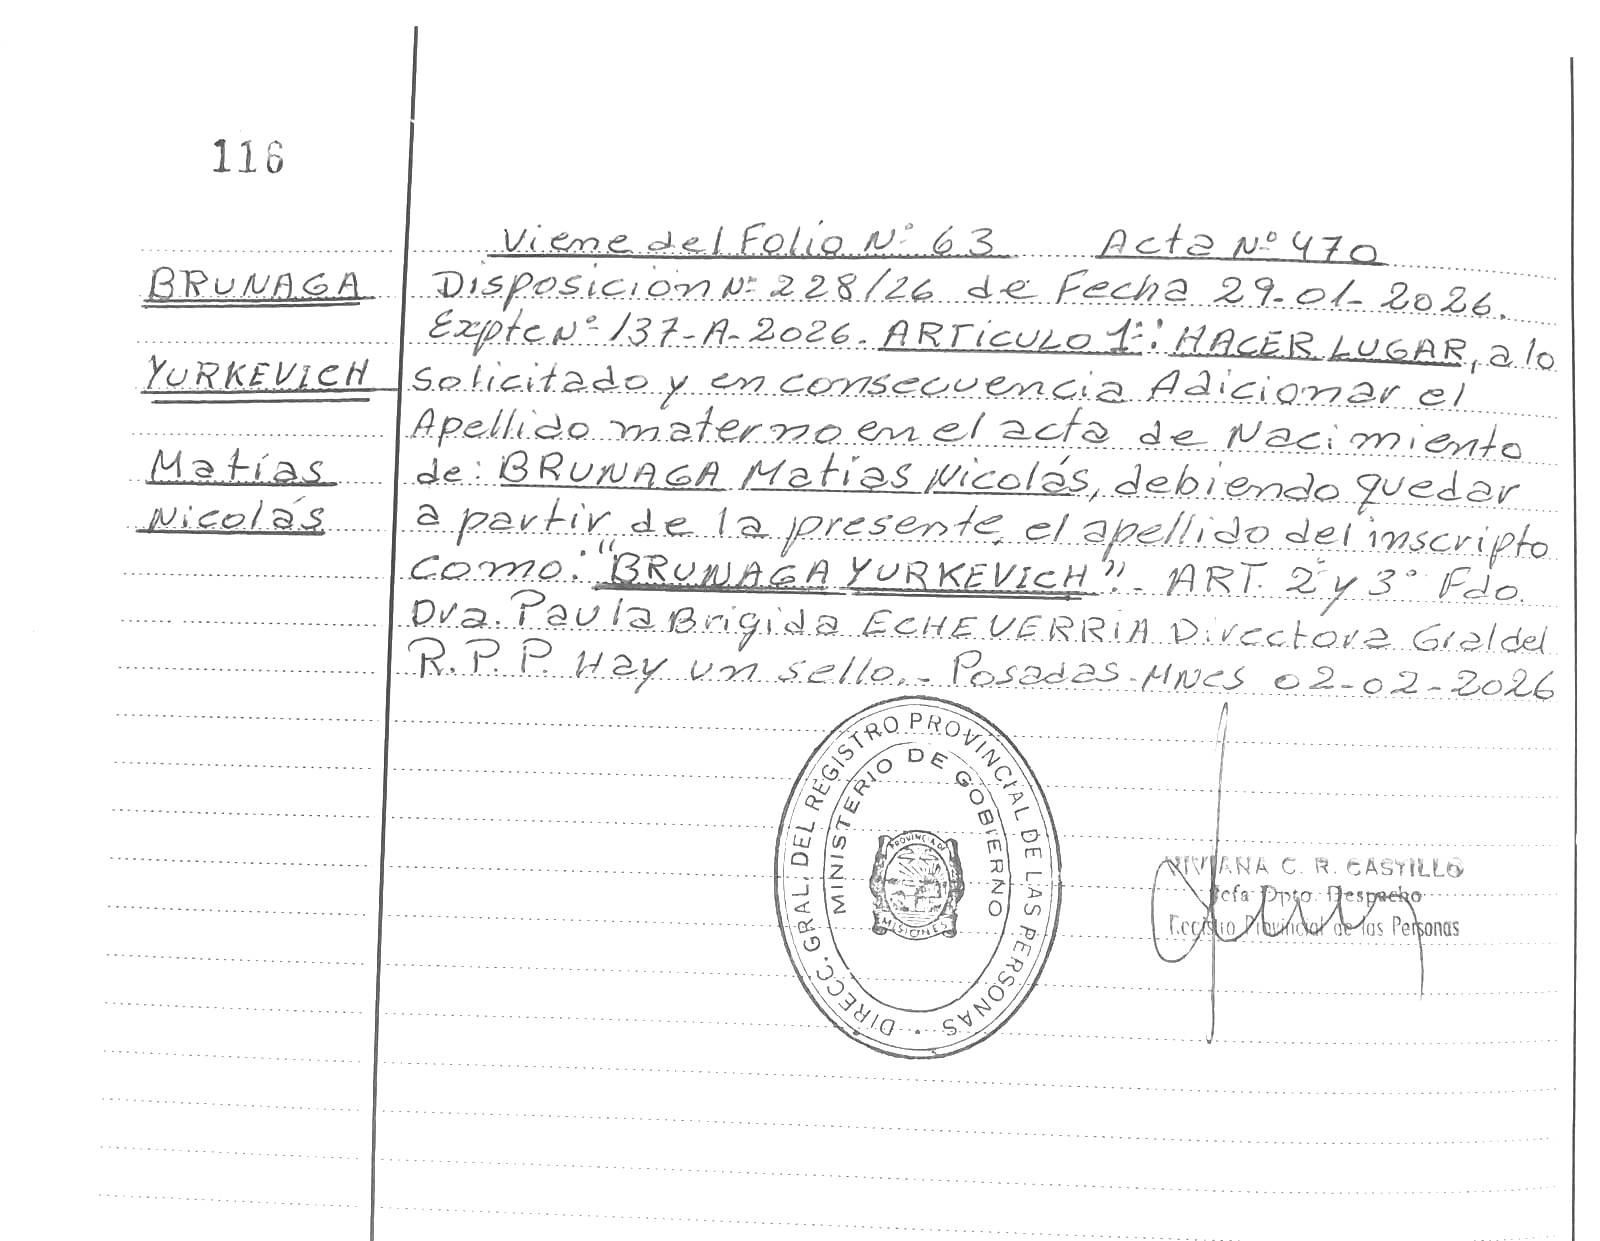 116
Viene del Folio Nº 63 Acta Nº 470
BRUNAGA
YURKEVICH
Matías
Nicolás
Disposición Nº 228/26 de Fecha 29-01-2026.
Expte Nº 137-A-2026. ARTICULO 1º: HACER LUGAR, a lo
solicitado y en consecuencia Adicionar el
Apellido materno en el acta de Nacimiento
de: BRUNAGA Matías Nicolás, debiendo quedar
a partir de la presente, el apellido del inscripto
como: "BRUNAGA YURKEVICH". ART. 2º y 3º Fdo.
Dra. Paula Brigida ECHEVERRIA Directora Gral del
R.P.P. Hay un sello.- Posadas-MNES 02-02-2026
DIRECC. GRAL. DEL REGISTRO PROVINCIAL DE LAS PERSONAS
MINISTERIO DE GOBIERNO
PROVINCIA DE
MISIONES
VIVIANA C. R. CASTILLO
Jefa Dpto. Despacho
Registro Provincial de las Personas